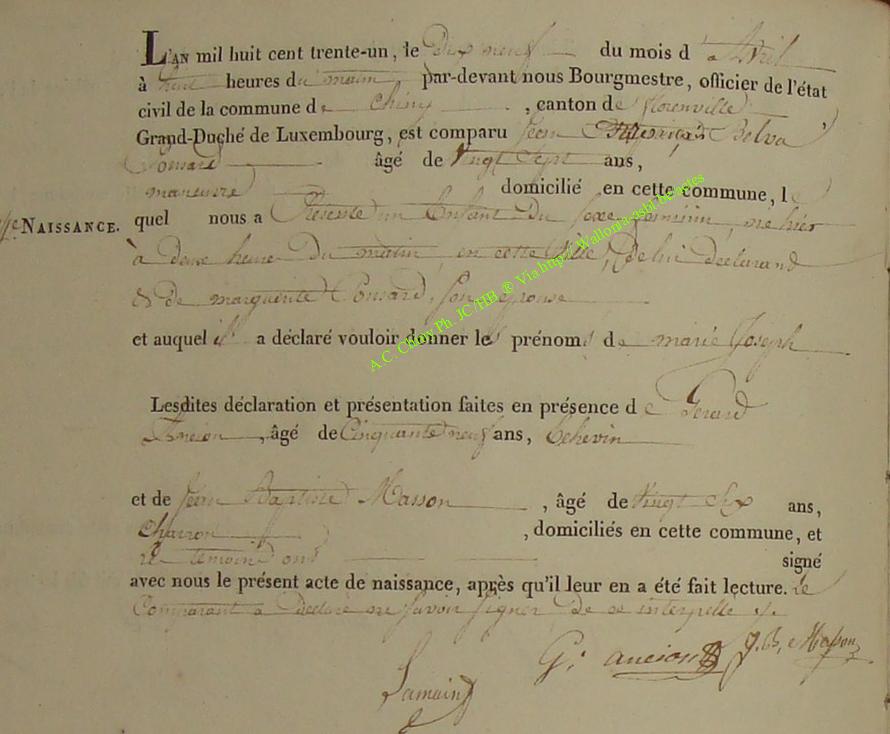 L'AN mil huit cent trente-un, le Dix neuf du mois d'Avril
à huit heures du matin, par-devant nous Bourgmestre, officier de l'état
civil de la commune de Chiny, canton de florenville
Grand-Duché de Luxembourg, est comparu Jean Belva
Ponsard âgé de Vingt Sept ans,
manœuvre domicilié en cette commune, le
NAISSANCE.
quel nous a Présenté un Enfant Du sexe feminin, née hier
à deux heures Du matin, en cette Ville, De lui déclarand
& de marguerite Ponsard, son epouse
et auquel il a déclaré vouloir donner les prénoms de marie Joseph
Lesdites déclaration et présentation faites en présence de Gerard
Ancion, âgé de Cinquante neuf ans, Echevin
et de Jean Baptiste Masson, âgé de Vingt Six ans,
charron, domiciliés en cette commune, et
temoins ont signé
avec nous le présent acte de naissance, après qu'il leur en a été fait lecture. Le
Comparant a Declaré ne savoir signer de ce interpellé
G. ancion J. B. Masson
Lamain
A.C. Chiny Ph. JC/HB ® Via http:// Wallonia-asbl be actes